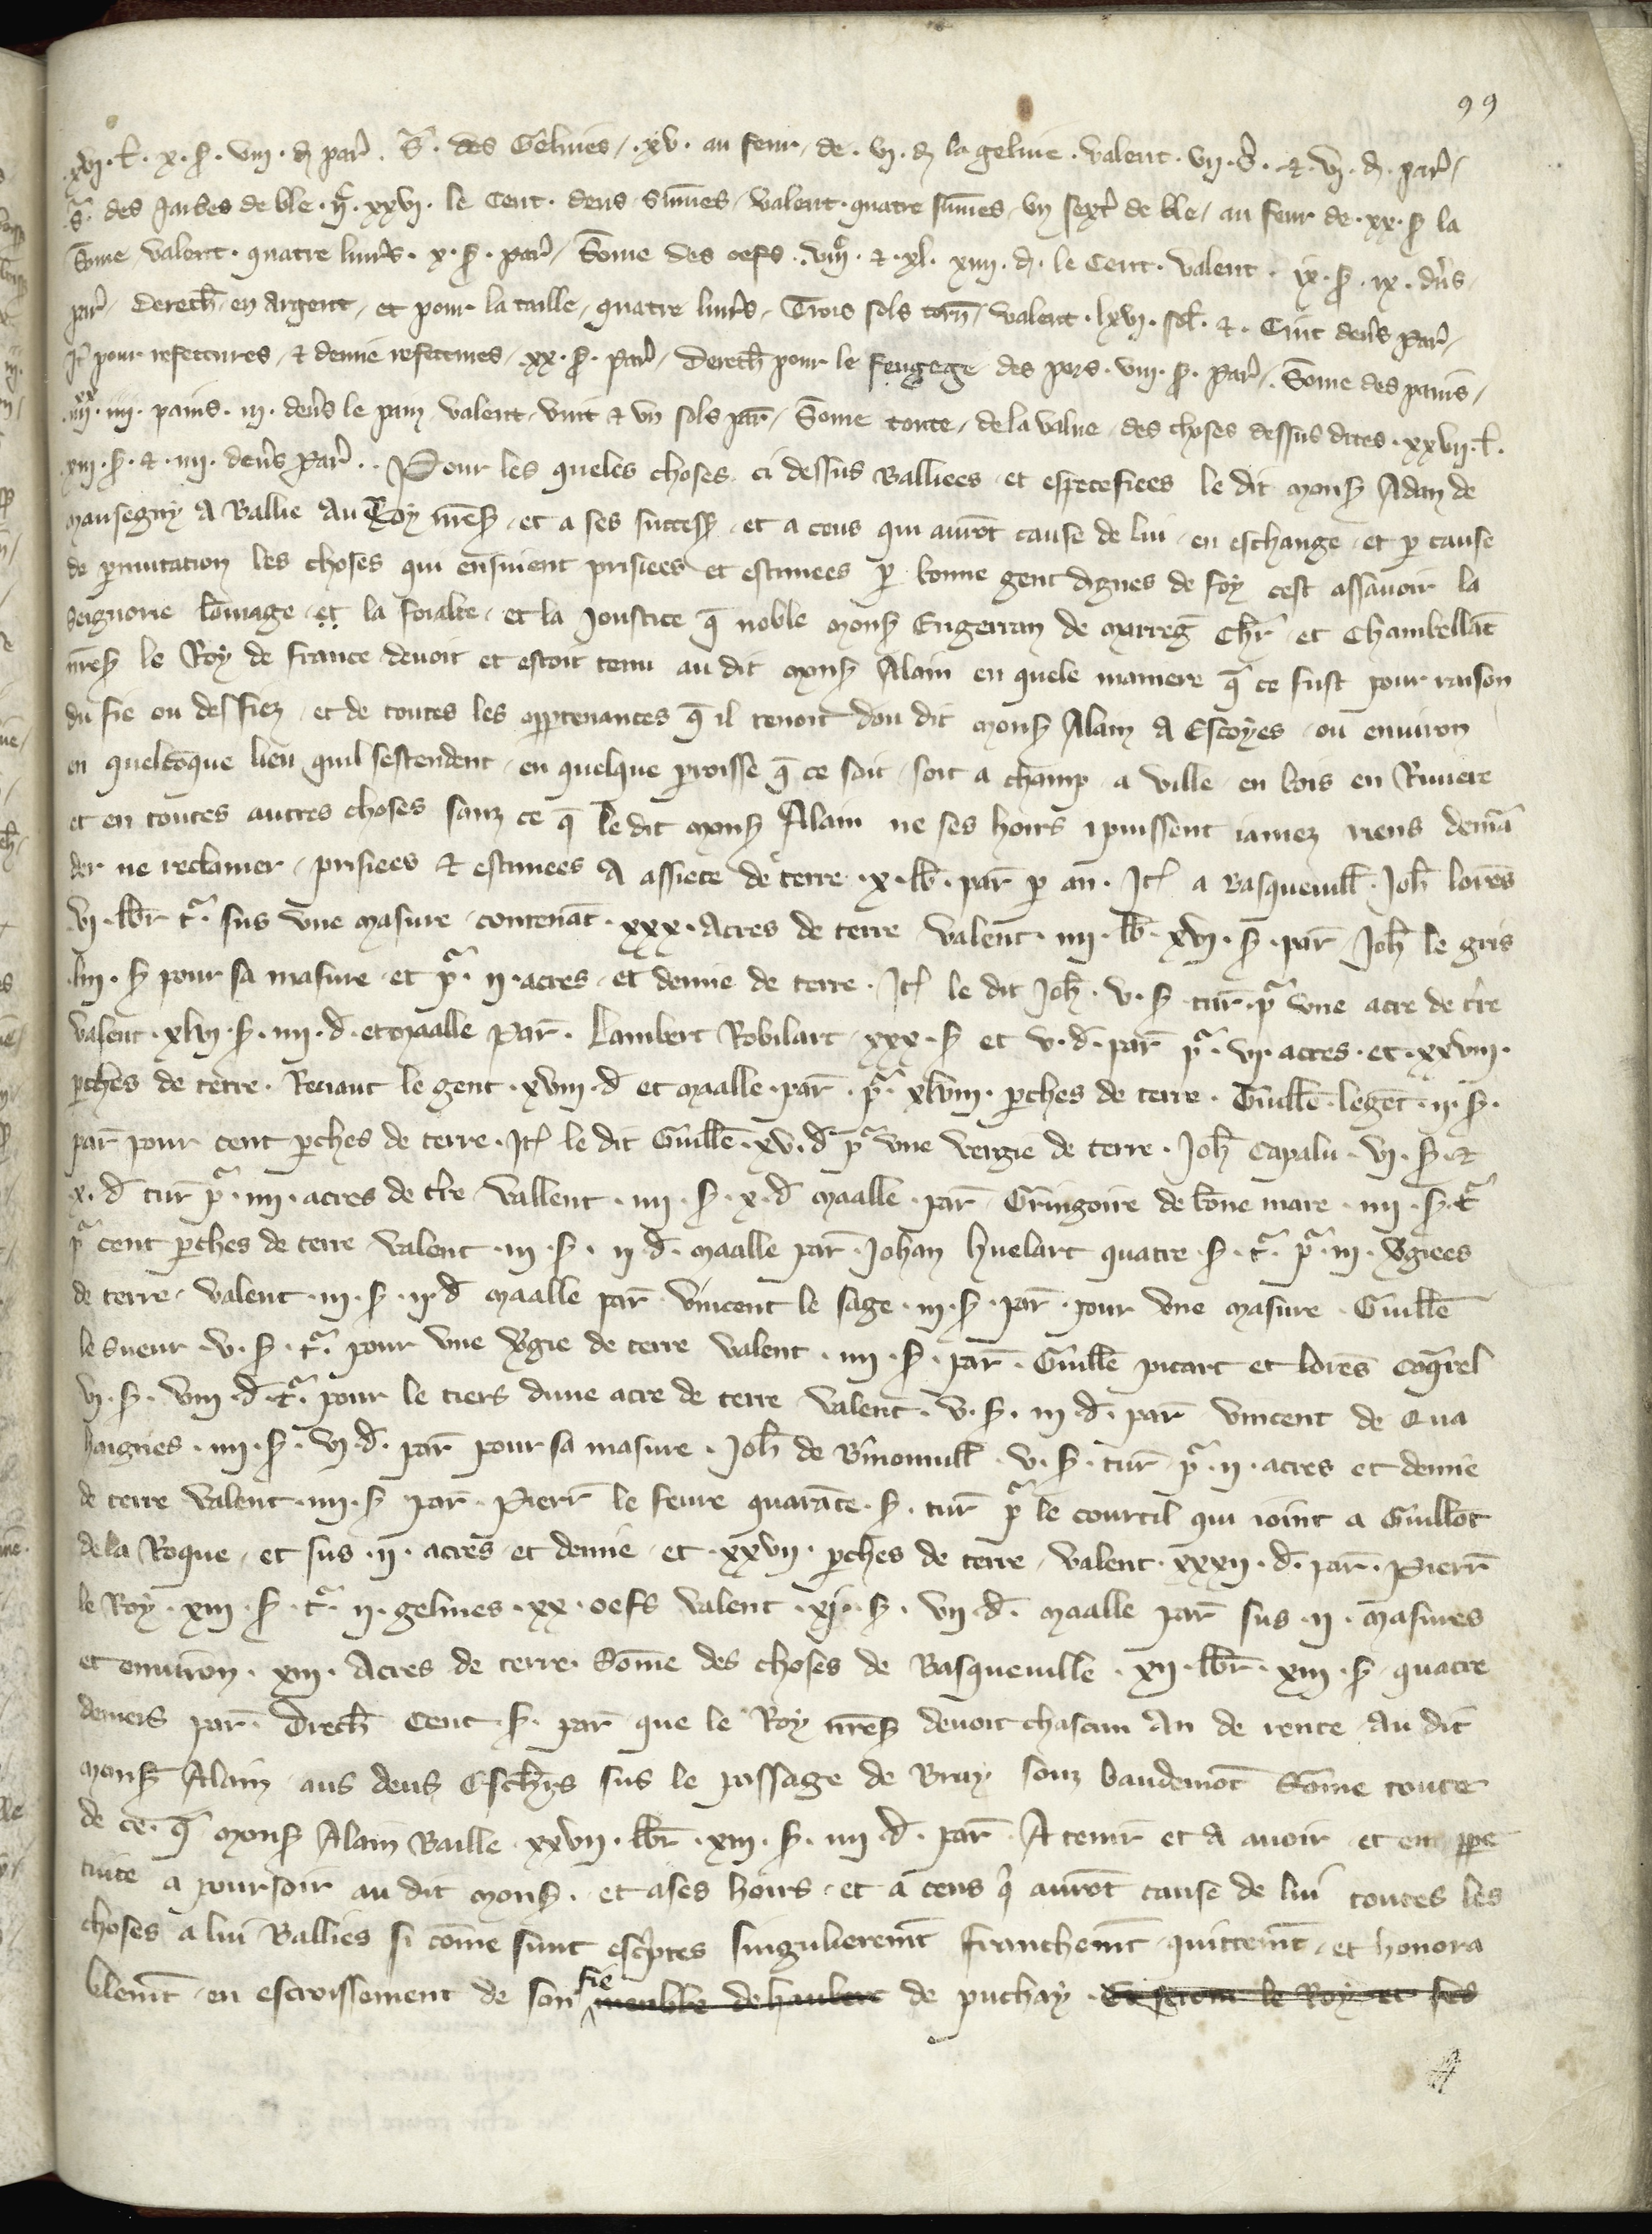 99
xvi. l. x. s. viii. d. par̃. S̃. des Gelines / xv. au feur de. vi. d. la geline. valent. vii. s̃. & vi. d. par̃ /
S̃. des garbes de ble. xxvi. le Cent. deus sũmes / valent. quatre sũmes / vn sext̃ de ble / au feur de. xx. s̃ la
Sõme valent. quatre liur̃s. x. s̃. par̃ / Sõme des oefs. & xl. xiiii. d. le Cent. valent. ix. s̃. ix. dñs.
par̃ / derech̃ en Argent / et pour la taille / quatre liur̃s / Trois sols torñ / valent. lxvi. sol̃. & Cinc deñs par̃ /
It̃ pour refectures / & demie refectures / xx. s̃. par̃ / derech̃ pour le feugege des pors. viii. s̃. par̃ / Sõme des pains /
iiii.xx iiii. pains. iii. deñs le pain valent. vint & vn sols par̃ / Sõme toute / de la value / des choses dessus dites. xxvii. l.
xiii. s̃. & iiii. deñs par̃. Pour les queles choses ci dessus Balliees et especefiees le dit mons̃ Adan de
mausegny A Ballie Au Roy nr̃es̃ / et a ses success̃ / et a ceus qui aurõt cause de lui / en eschange / et p̱ cause
de p̱mutation les choses qui ensuient prisiees et estimees p̱ bonne gent dignes de foy cest assauoir la
seignorie lõmage / et la foialte / et la joustice q̃ noble mons̃ Engerran de marreg̃ chr̃ / et Chambellãt
nr̃es̃ le Roy de france deuoit et estoit tenu au dit mons̃ Alain en quele maniere q̃ ce fust pour raison
du fie ou des fiez / et de toutes les apptenances q̃ il tenoit dou dit mons̃ Alain A Escoyes / ou enuiron
en quelcõque lieu quil sestendent / en quelque p̱roisse q̃ ce soit / soit a champ a ville / en bois en Riuiere
et en toutes autres choses sanz ce q̃ le dit mons̃ Alain ne ses hoirs i puissent iamez riens demã
der ne reclamer / prisiees & estimees A assiete de terre. x. lb̃. par̃ p̱ an. It̃ a Basqueuill̃. Joh̃ lorẽs
vi. lbr̃ t̃. sus vne masure / contenãt. xxx. Acres de terre valent. iiii. lb̃. xvi. s̃. par̃ Joh̃ le gris
liii. s̃ pour sa masure / et p̃. ii. acres / et demie de terre. It̃ le dit Joh̃. v. s̃ tur̃. p̃ vne acre de tr̃e
valent. xlvi. s̃. iiii. d̃. et maalle par̃. Lambert Robilart. xxx. s̃ et v. d̃. par̃ p̃. vi. acres. et. xxviii.
p̱ches de terre. Renaut le gent. xviii. d̃ et maalle. par̃. p̃. xlviii. p̱ches de terre. Guill̃e. legẽt. ii. s̃.
par̃ pour cent p̱ches de terre. It̃ le dit Guill̃e. xv. d̃ p̃ vne vergie de terre. Joh̃ Capalu. vi. s̃. &
x. d̃ tur̃ p̃. iiii. acres de tr̃e vallent. iiii. s̃. x. d̃ maalle. par̃ Gringoire de bõne mare. iiii. s̃. t̃
p̃ cent p̱ches de terre valent. iii. s̃. ii. d̃. maalle par̃. Johan huelart quatre s̃. t̃. p̃. iii. ṽgiees
de terre / valent. iii. s̃. ii. d̃ maalle par̃. vincent le sage. iii. s̃. par̃. pour vne masure. Guill̃e
le sueur. v. s̃. t̃. pour vne ṽgie de terre valent. iiii. s̃. par̃. Guill̃e picart et lorẽs coq̃rel
vi. s̃. viii. d̃. t̃. pour le tiers dune acre de terre valent. v. s̃. iii d̃. par̃ vincent de Qua
haignes. iiii. s̃. vi d̃. par̃ pour sa masure. Joh̃ de v. s̃. tur̃ p̃. ii. acres et demie
de terre valent. iiii. s̃ par̃. Pierr̃ le feure quarãte. s̃. tur̃ p̃ le courtil qui ioint a Guillot
de la Roque / et sus. ii. acres et demie / et. xxvii. p̱ches de terre / valent. xxxii. d̃. par̃. Pierr̃
le Roy. xiii. s̃. t̃. ii. gelines. xx. oefs valent. xi. s̃. vii. d̃. maalle par̃ sus. ii. masures
et enuiron. xiii. Acres de terre. Sõme des choses de Basqueuille. xii. lbr̃. xiii. s̃. quatre
deniers par̃. Derech̃ Cent. s̃. par̃ que le Roy nr̃es̃ deuoit chascun An de rente / Au dit
mons̃ Alain / aus deus Eschr̃s sus le passage de Bray souz baudemõt Sõme toute
de ce q̃ mons̃ Alain Baille. xxvii. lbr̃. xiii. s̃. iiii. d̃. par̃. A tenir et A auoir / et en p̱pe
tuite a poursoir au dit mons̃. et a ses hoirs / et a ceus q̃ aurõt cause de lui toutes les
choses a lui Ballies si cõme sunt esc̃ptes singulierem̃t franchem̃t / quittem̃t / et honora
blem̃t / en escroissement de son fie meuble de haubert de puchay. Et seront le Roy et ses